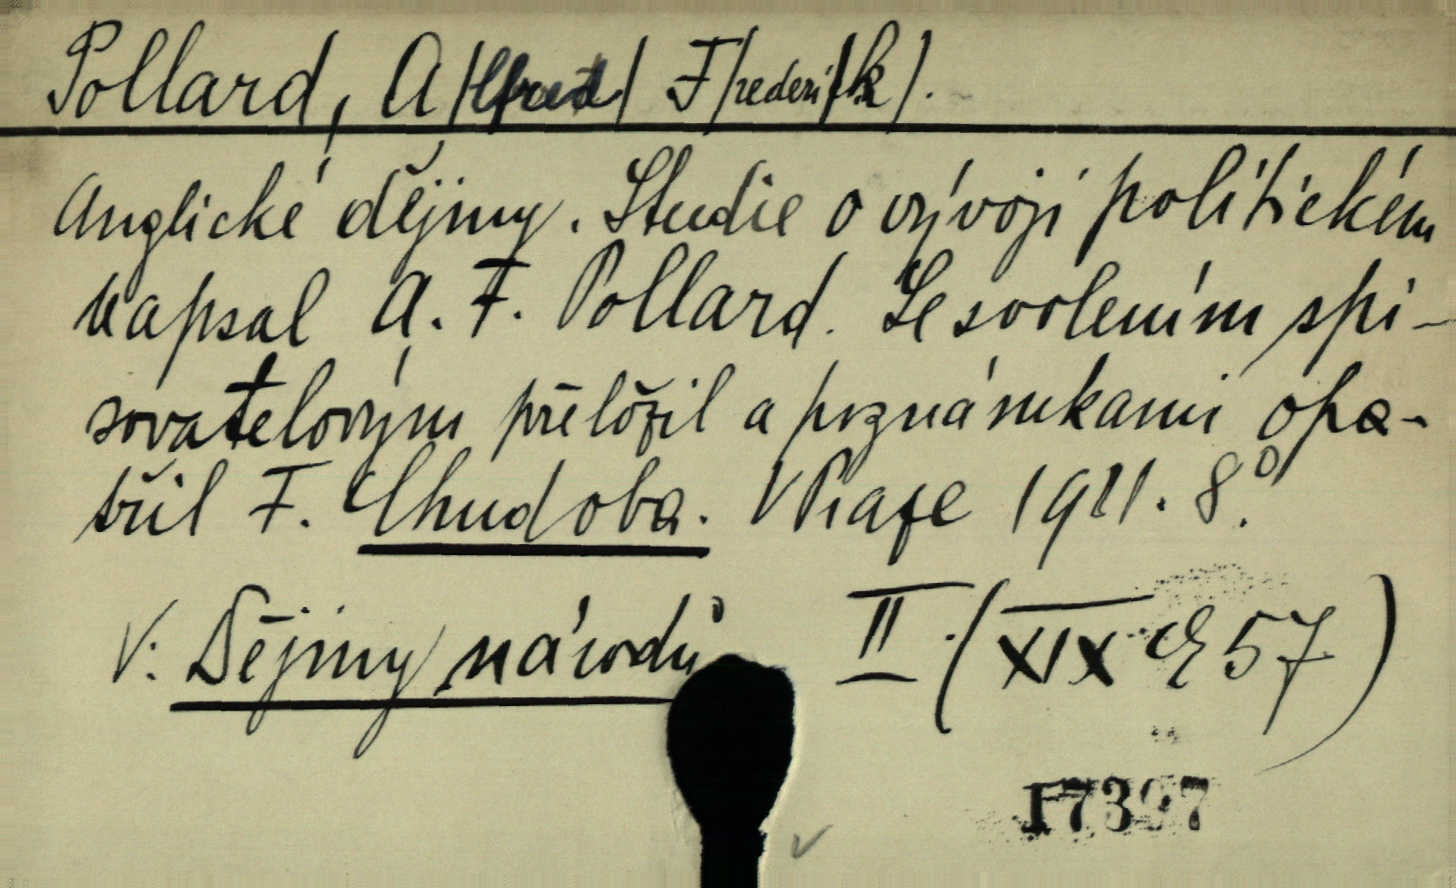 Pollard, A/lfred/ F/rederi/k/.
Anglické dějiny. Studie o vývoji politickém
napsal A. F. Pollard. Se svolením spi-
sovatelovým přeložil a poznámkami opa-
třil F. Chudoba. V Praze 1911. 8°.
V: Dějiny národů II. (XIX E 57)